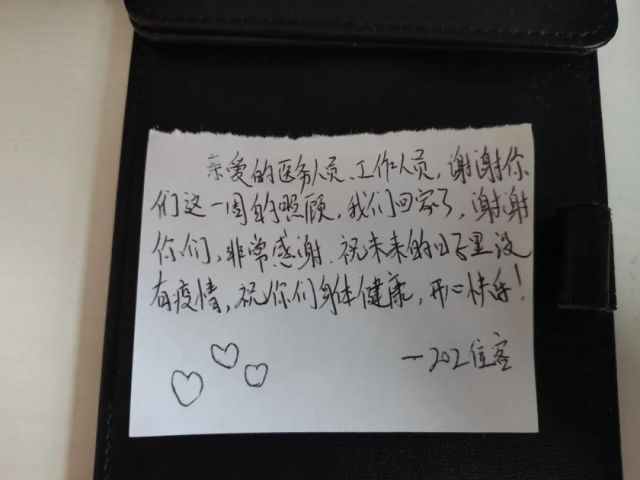 亲爱的医务人员、工作人员，谢谢你
们这一周的照顾，我们回家了，谢谢
你们，非常感谢．祝未来的日子里没
有疫情，祝你们身体健康，开心快乐！
—202住客